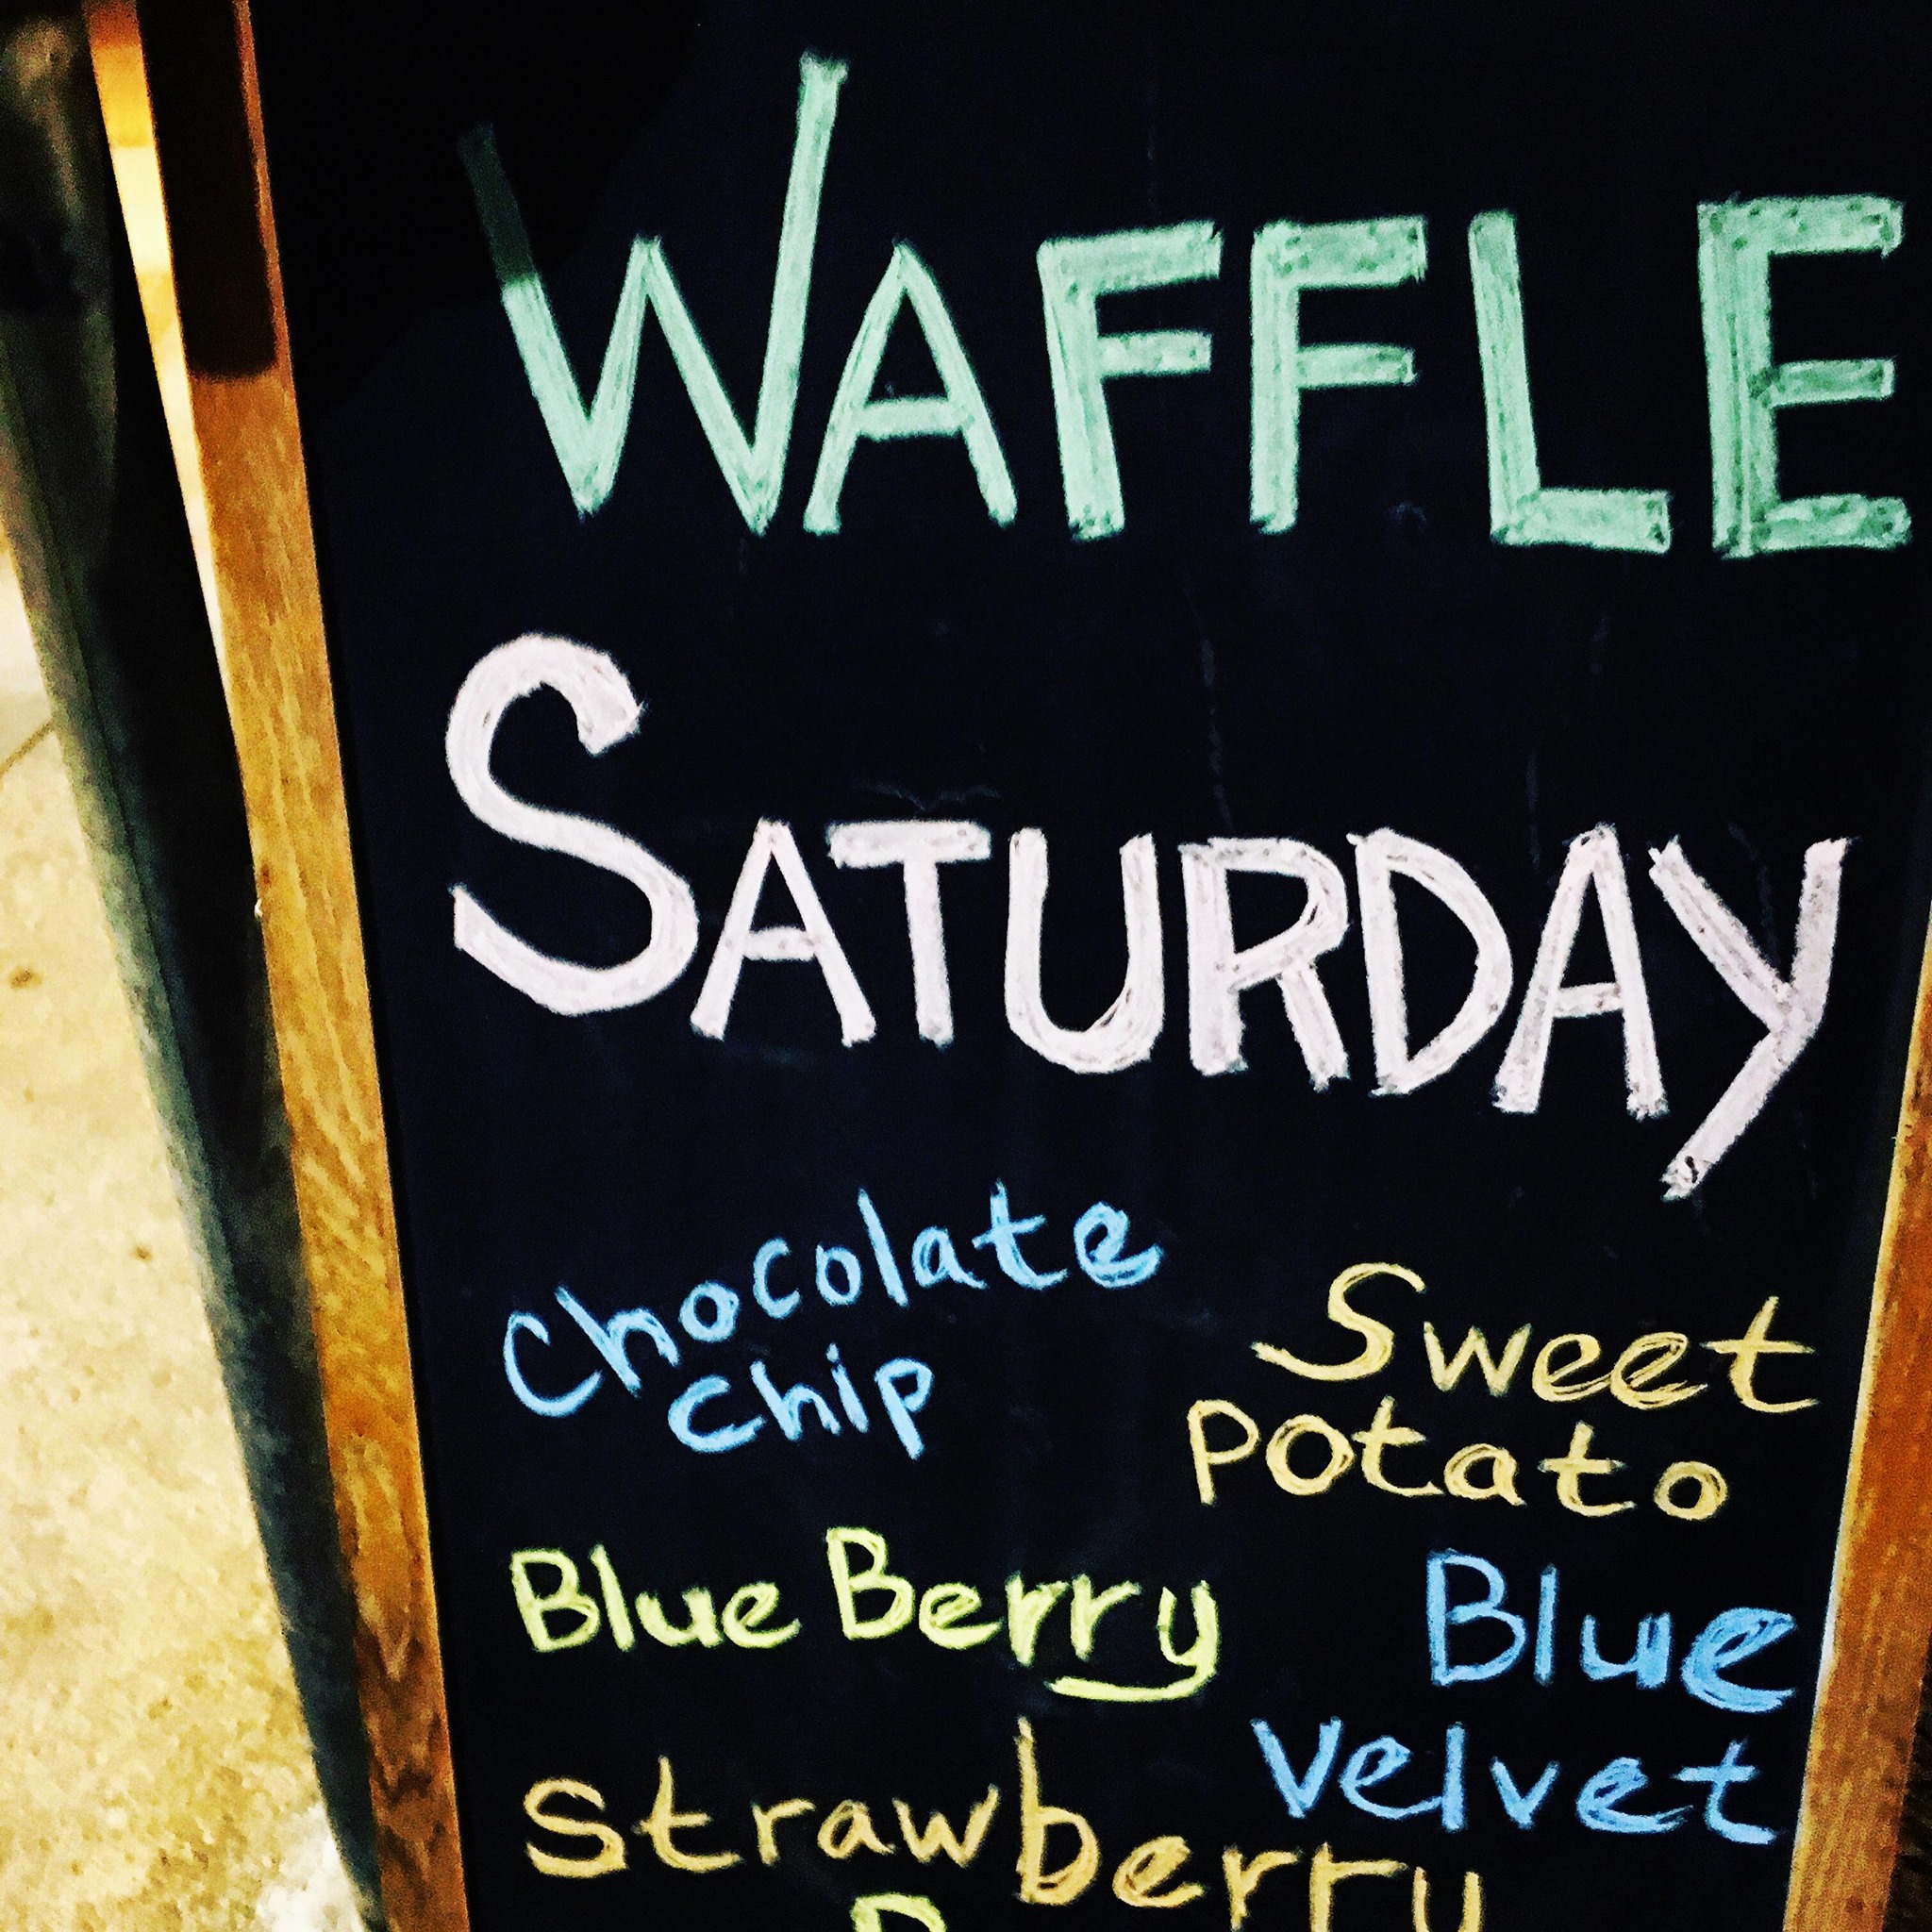 WAFFLE
SATURDAY
Chocolate
Chip
Sweet
Potato
Blue Berry
Blue
Velvet
Strawberry